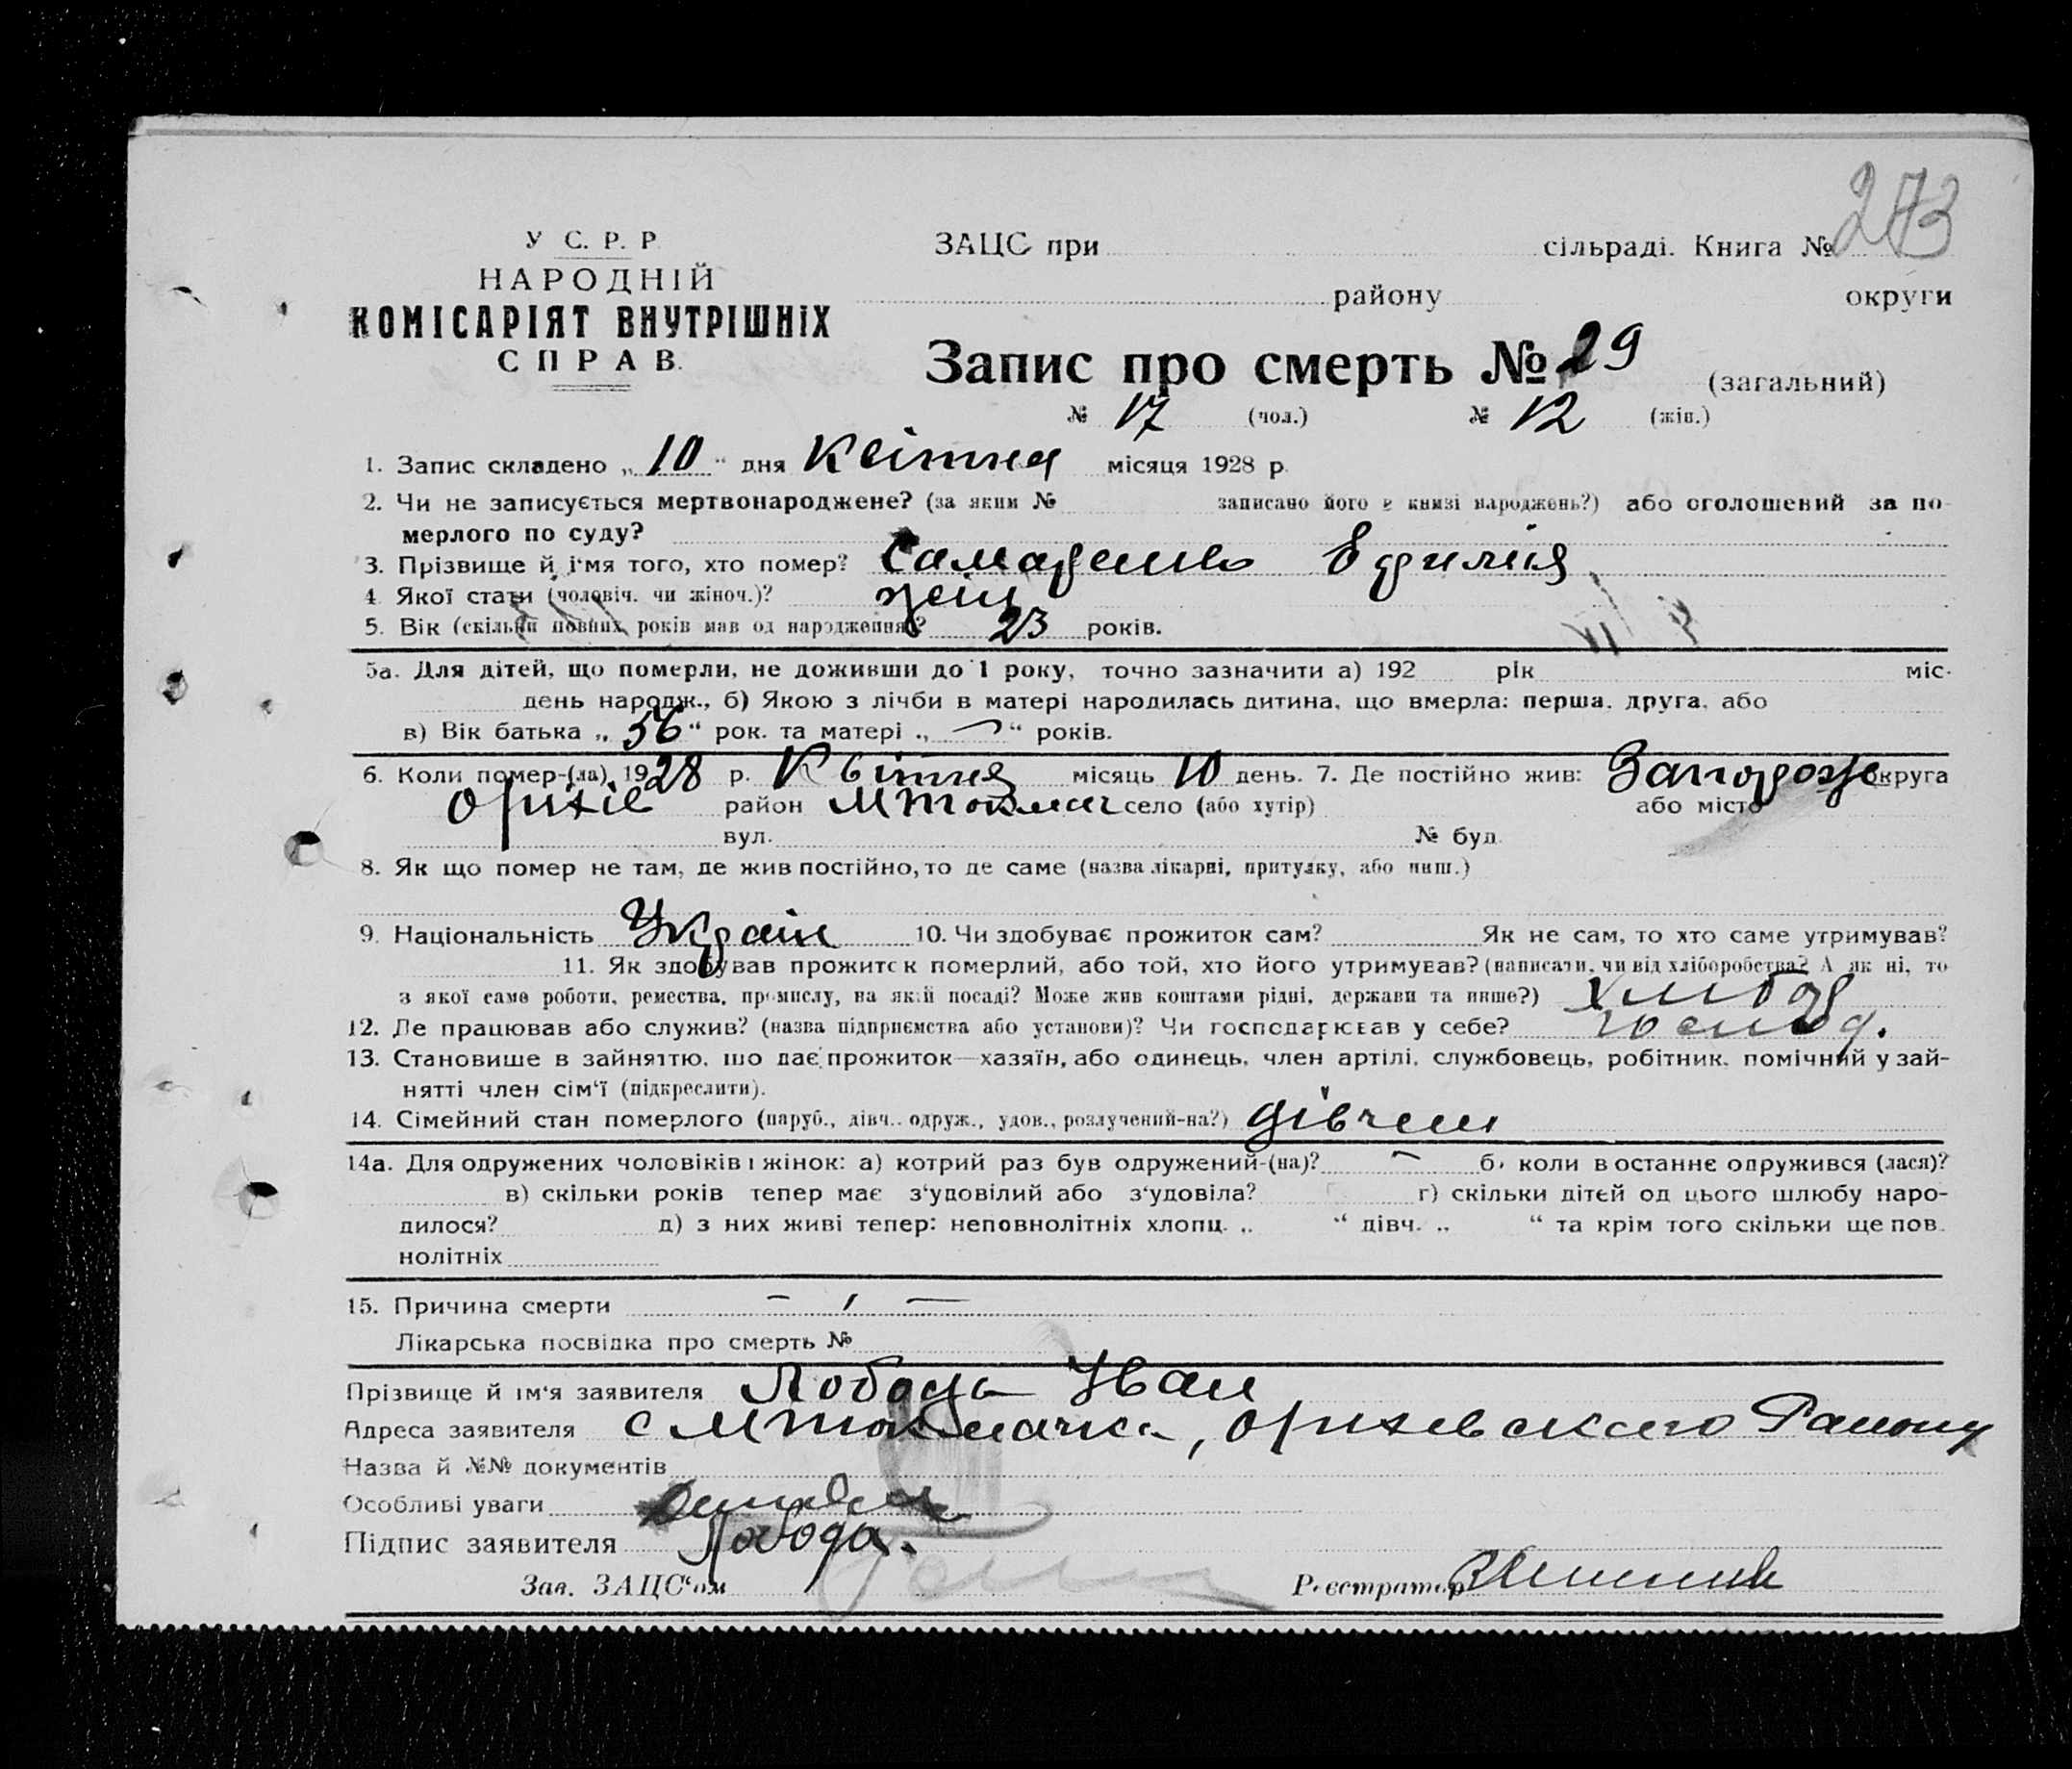 273
У С. Р. Р.
НАРОДНІЙ
КОМІСАРІЯТ ВНУТРІШНІХ
СПРАВ.
ЗАЦС при сільраді. Книга №
району округи
Запис про смерть № 29 (загальний)
№ 17 (чол.) № 12 (жін.)
1. Запис складено „10“ дня Квітня місяця 1928 р.
2. Чи не записується мертвонароджене? (за яким № записано його в книзі народжень?) або оголошений за по-
мерлого по суду?
3. Прізвище й ім'я того, хто помер?
4. Якої стати (чоловіч. чи жіноч.)? жін
5. Вік (скільки повних років мав од народження)? 23 років.
5а. Для дітей, що померли, не доживши до 1 року, точно зазначити а) 192 рік міс.
день народж., б) Якою з лічби в матері народилась дитина, що вмерла: перша, друга, або
в) Вік батька „56“ рок. та матері „—“ років.
6. Коли помер-(ла) 1928 р. Квітня місяць 10 день. 7. Де постійно жив: Запорож округа
Оріхів район М Токмач село (або хутір) або місто
вул. № буд.
8. Як що помер не там, де жив постійно, то де саме (назва лікарні, притулку, або инш.)
9. Національність Україн 10. Чи здобуває прожиток сам? Як не сам, то хто саме утримував?
11. Як здобував прожиток померлий, або той, хто його утримував? (написати, чи від хліборобства? А як ні, то
з якої саме роботи, ремества, промислу, на якій посаді? Може жив коштами рідні, держави та инше?) Хлибор
12. Де працював або служив? (назва підприємства або установи)? Чи господарював у себе?
13. Становище в зайняттю, що дає прожиток—хазяїн, або одинець, член артілі, службовець, робітник, помічний у зай-
нятті член сім'ї (підкреслити).
14. Сімейний стан померлого (паруб., дівч., одруж., удов., розлучений-на?) дівчин
14а. Для одружених чоловіків і жінок: а) котрий раз був одружений-(на)? — б) коли в останнє одружився (лася)?
в) скільки років тепер має з'удовілий або з'удовіла? г) скільки дітей од цього шлюбу наро-
дилося? д) з них живі тепер: неповнолітніх хлопц. „ “ дівч. „ “ та крім того скільки ще пов-
нолітніх
15. Причина смерти — , —
Лікарська посвідка про смерть №
Прізвище й ім'я заявителя Лобода Іван
Адреса заявителя с М Токмачка, Оріхівського Району
Назва й №№ документів
Особливі уваги
Підпис заявителя Лобода.
Зав. ЗАЦС'ом Реєстратор